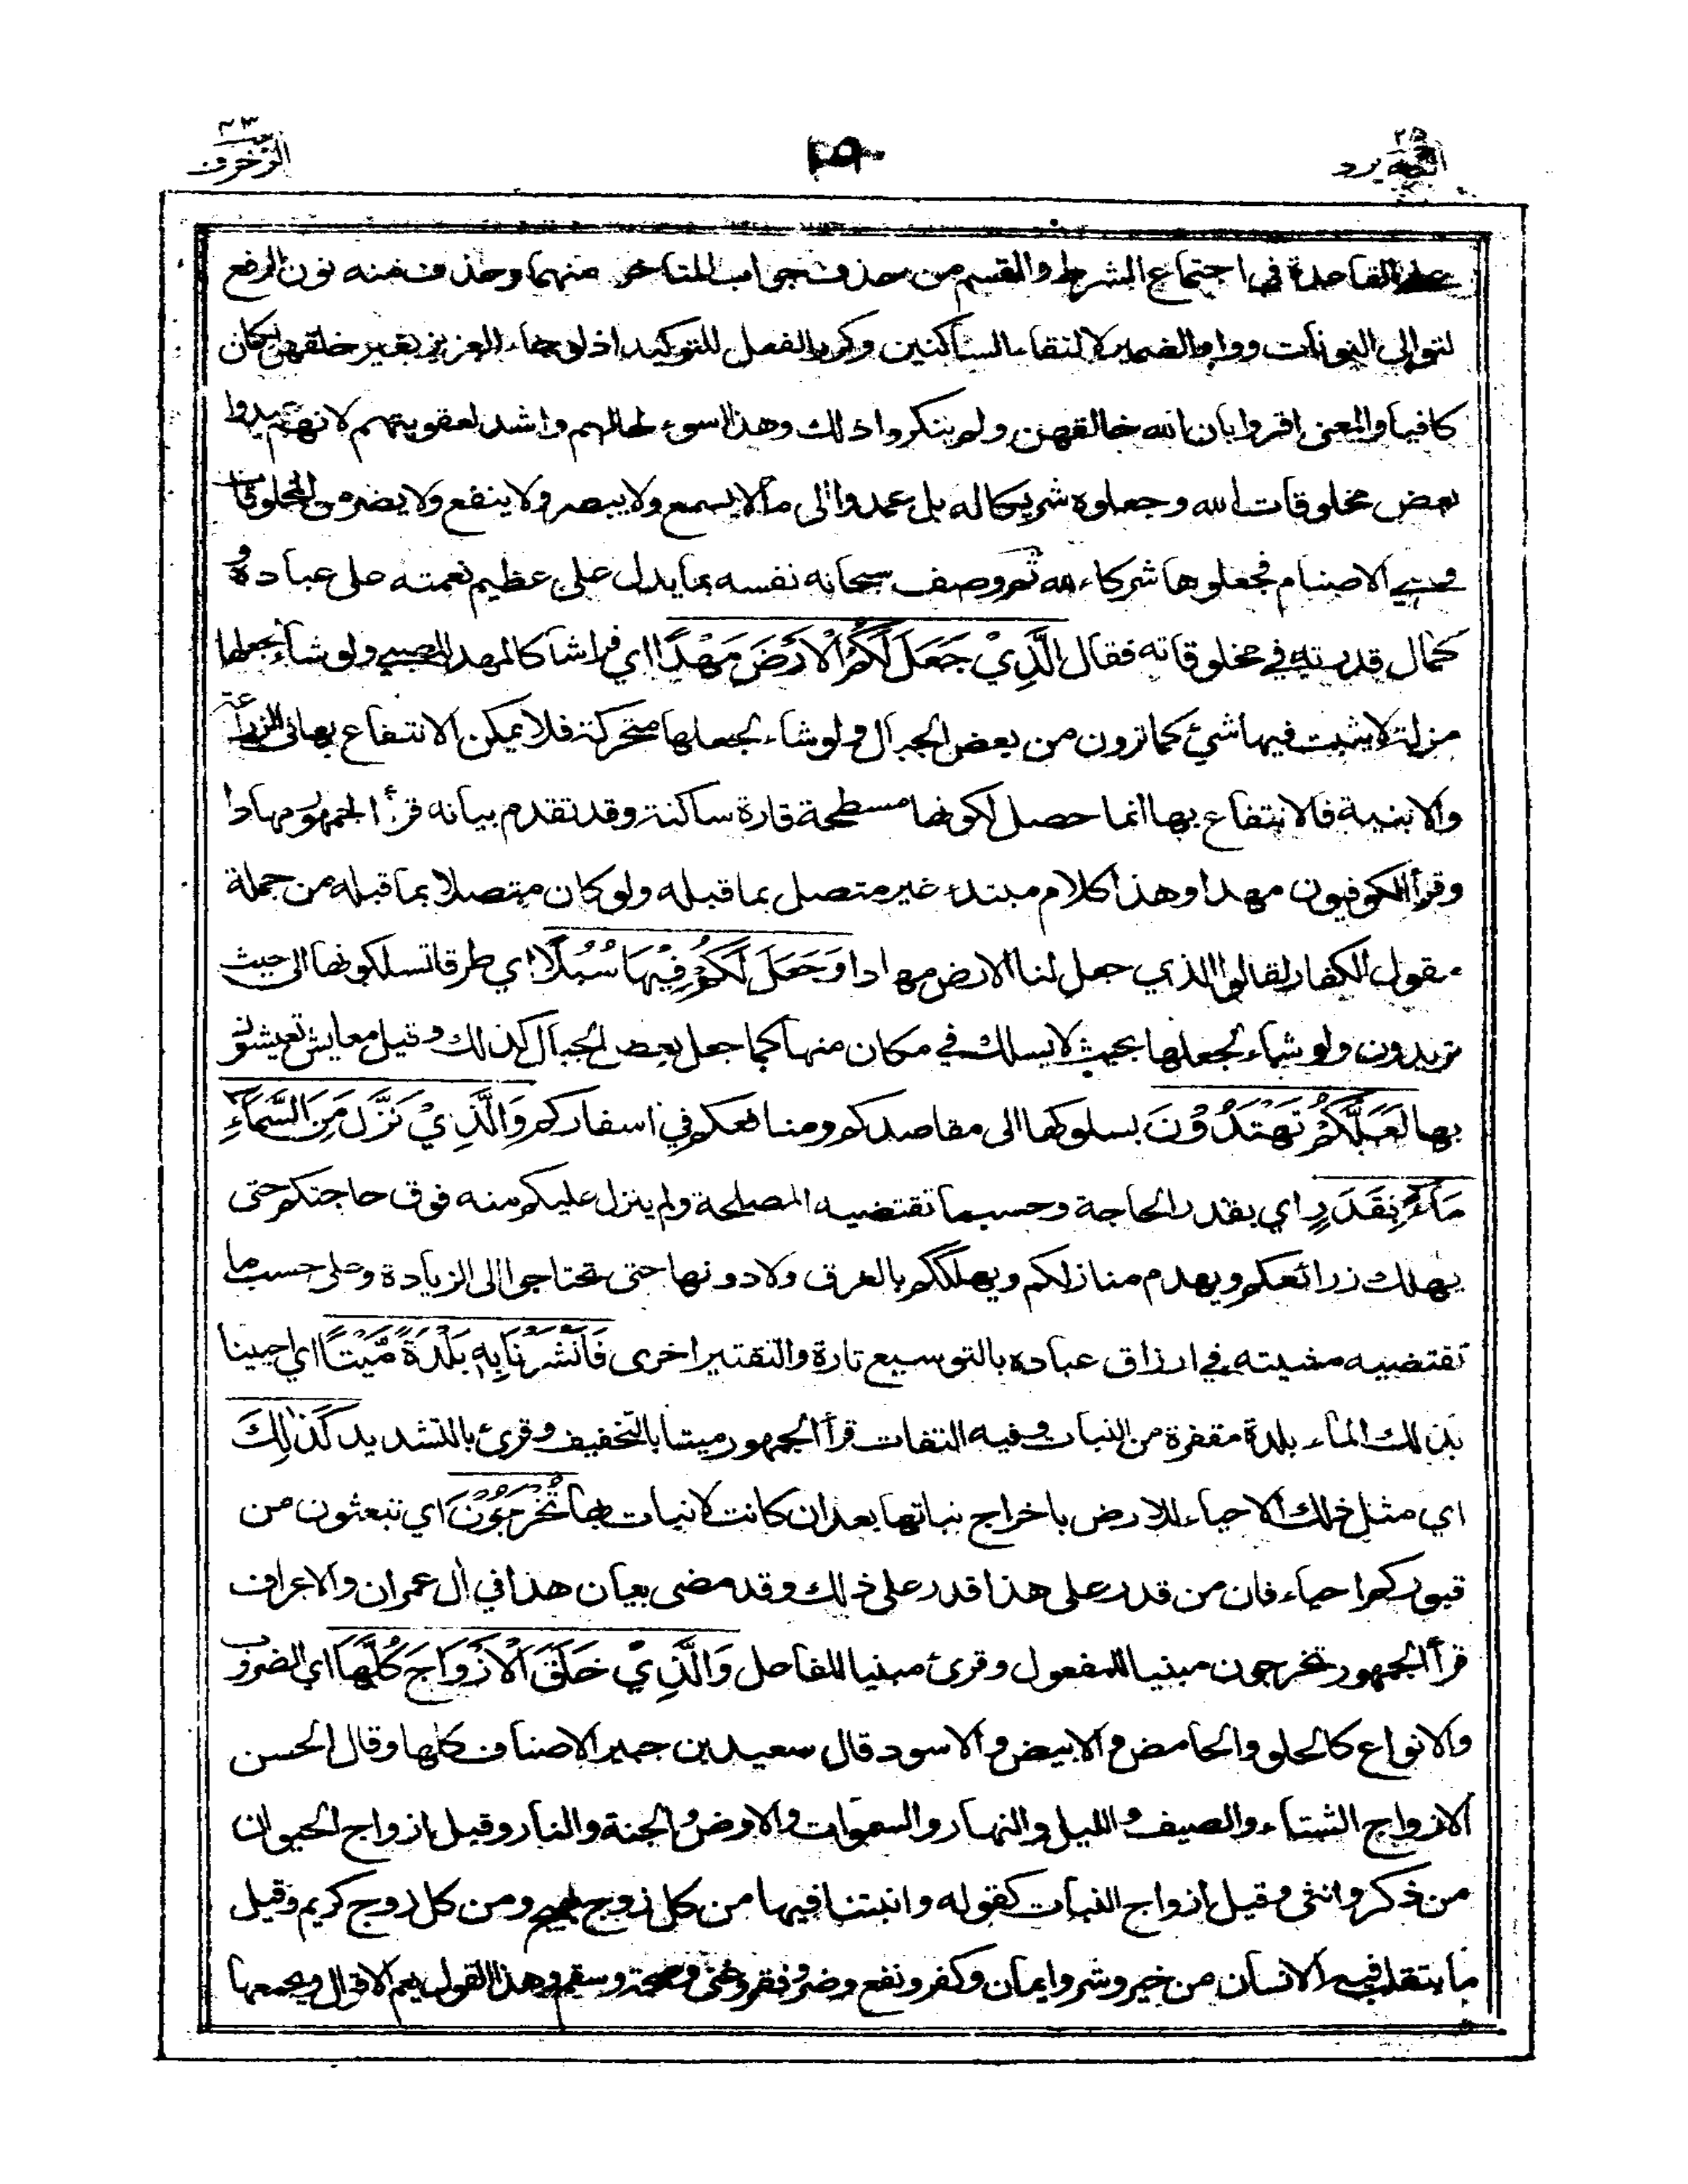 اليه يرد ٢٥
٢٥٠
الزخرف ٤٣
على القاعدة في اجتماع الشرط والقسم من حذف جواب المتأخر منهما وحذف منه نون الرفع
لتوالي النونات وواو الضمير لالتقاء الساكنين وكرر الفعل للتوكيد اذ لو جاء العزيز بغير خلقهن لكان
كافيا والمعنى اقروا بان الله خالقهن ولم ينكروا ذلك وهذا اسوء لحالهم واشد لعقوبتهم لانهم عبدوا
بعض مخلوقات الله وجعلوه شريكا له بل عمدوا الى ما لا يسمع ولا يبصر ولا ينفع ولا يضر من المخلوقات
وهي الاصنام فجعلوها شركاء لله ثم وصف سبحانه نفسه بما يدل على عظيم نعمته على عباده و
كمال قدرته في مخلوقاته فقال الَّذِيْ جَعَلَ لَكُمُ الْاَرْضَ مَهْدًا اي فراشا كالمهد للصبي ولو شاء لجعلها
مزلة لا يثبت فيها شيئ كما ترون من بعض الجبال ولو شاء لجعلها متحركة فلا يمكن الانتفاع بها في الزراعة
والابنية فالانتفاع بها انما حصل لكونها مسطحة قارة ساكنة وقد تقدم بيانه قرأ الجمهور مهادا
وقرأ الكوفيون مهدا وهذا كلام مبتدء غير متصل بما قبله ولو كان متصلا بما قبله من جملة
مقول الكفار لقالوا الذي جعل لنا الارض مهادا وَجَعَلَ لَكُمْ فِيْهَا سُبُلًا اي طرقا تسلكونها الى حيث
تريدون ولو شاء لجعلها بحيث لا يسلك في مكان منها كما جعل بعض الجبال كذلك وقيل معايش تعيشون
بها لَعَلَّكُمْ تَهْتَدُوْنَ بسلوكها الى مقاصدكم ومنافعكم في اسفاركم وَالَّذِيْ نَزَّلَ مِنَ السَّمَآءِ
مَآءً بِقَدَرٍ اي بقدر الحاجة وحسبما تقتضيه المصلحة ولم ينزل عليكم منه فوق حاجتكم حتى
يهلك زرائعكم ويهدم منازلكم ويهلككم بالغرق ولا دونها حتى تحتاجوا الى الزيادة وعلى حسب ما
تقتضيه مشيته في ارزاق عباده بالتوسيع تارة والتقتير اخرى فَاَنْشَرْنَا بِهٖ بَلْدَةً مَّيْتًا اي احيينا
بذلك الماء بلدة مقفرة من النبات وفيه التفات قرأ الجمهور ميتا بالتخفيف وقرئ بالتشديد كَذٰلِكَ
اي مثل ذلك الاحياء للارض باخراج نباتها بعد ان كانت لا نبات بها تُخْرَجُوْنَ اي تبعثون من
قبوركم احياء فان من قدر على هذا قدر على ذلك وقد مضى بيان هذا في أل عمران والاعراف
قرأ الجمهور تخرجون مبنيا للمفعول وقرئ مبنيا للفاعل وَالَّذِيْ خَلَقَ الْاَزْوَاجَ كُلَّهَا اي الضروب
والانواع كالحلو والحامض والابيض والاسود قال سعيد بن جبير الاصناف كلها وقال الحسن
الازواج الشتاء والصيف والليل والنهار والسموات والارض والجنة والنار وقيل ازواج الحيوان
من ذكر وانثى وقيل ازواج النبات كقوله وانبتنا فيها من كل زوج بهيج ومن كل زوج كريم وقيل
ما يتقلب فيه الانسان من خير وشر وايمان وكفر ونفع وضر وفقر وغنى وصحة وسقم وهذا القول يعم الاقوال ويجمعها